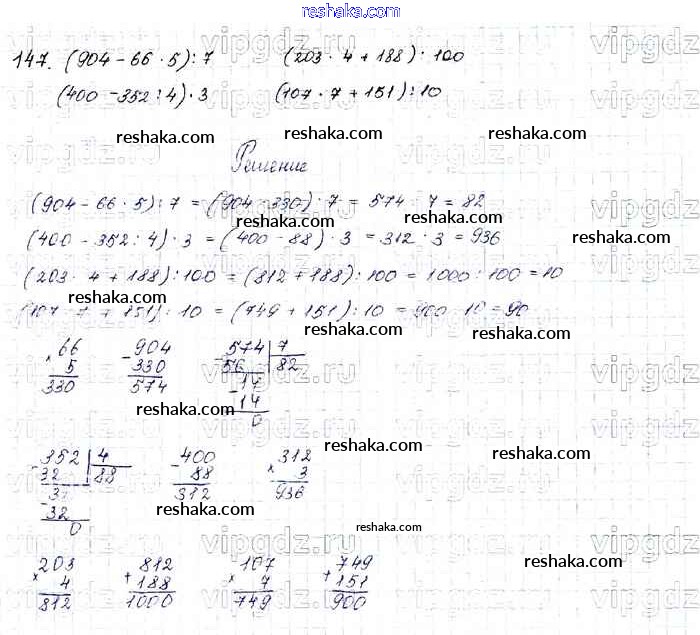 reshaka.com
147. (904 - 66 · 5) : 7 (203 · 4 + 188) : 100
(400 - 352 : 4) · 3 (107 · 7 + 151) : 10
reshaka.com reshaka.com reshaka.com
Решение
(904 - 66 · 5) : 7 = (904 - 330) : 7 = 574 : 7 = 82
reshaka.com reshaka.com
(400 - 352 : 4) · 3 = (400 - 88) · 3 = 312 · 3 = 936
reshaka.com
(203 · 4 + 188) : 100 = (812 + 188) : 100 = 1000 : 100 = 10
reshaka.com
(107 · 7 + 151) : 10 = (749 + 151) : 10 = 900 : 10 = 90
reshaka.com
× 66 - 904 - 574 | 7
5 330 56 82
330 574 - 14
14
0
reshaka.com reshaka.com
- 352 | 4 - 400 × 312
32 88 88 3
- 32 312 936
32
0
reshaka.com reshaka.com reshaka.com
reshaka.com
× 203 + 812 × 107 + 749
4 188 7 151
812 1000 749 900
reshaka.com
vipgdz.ru